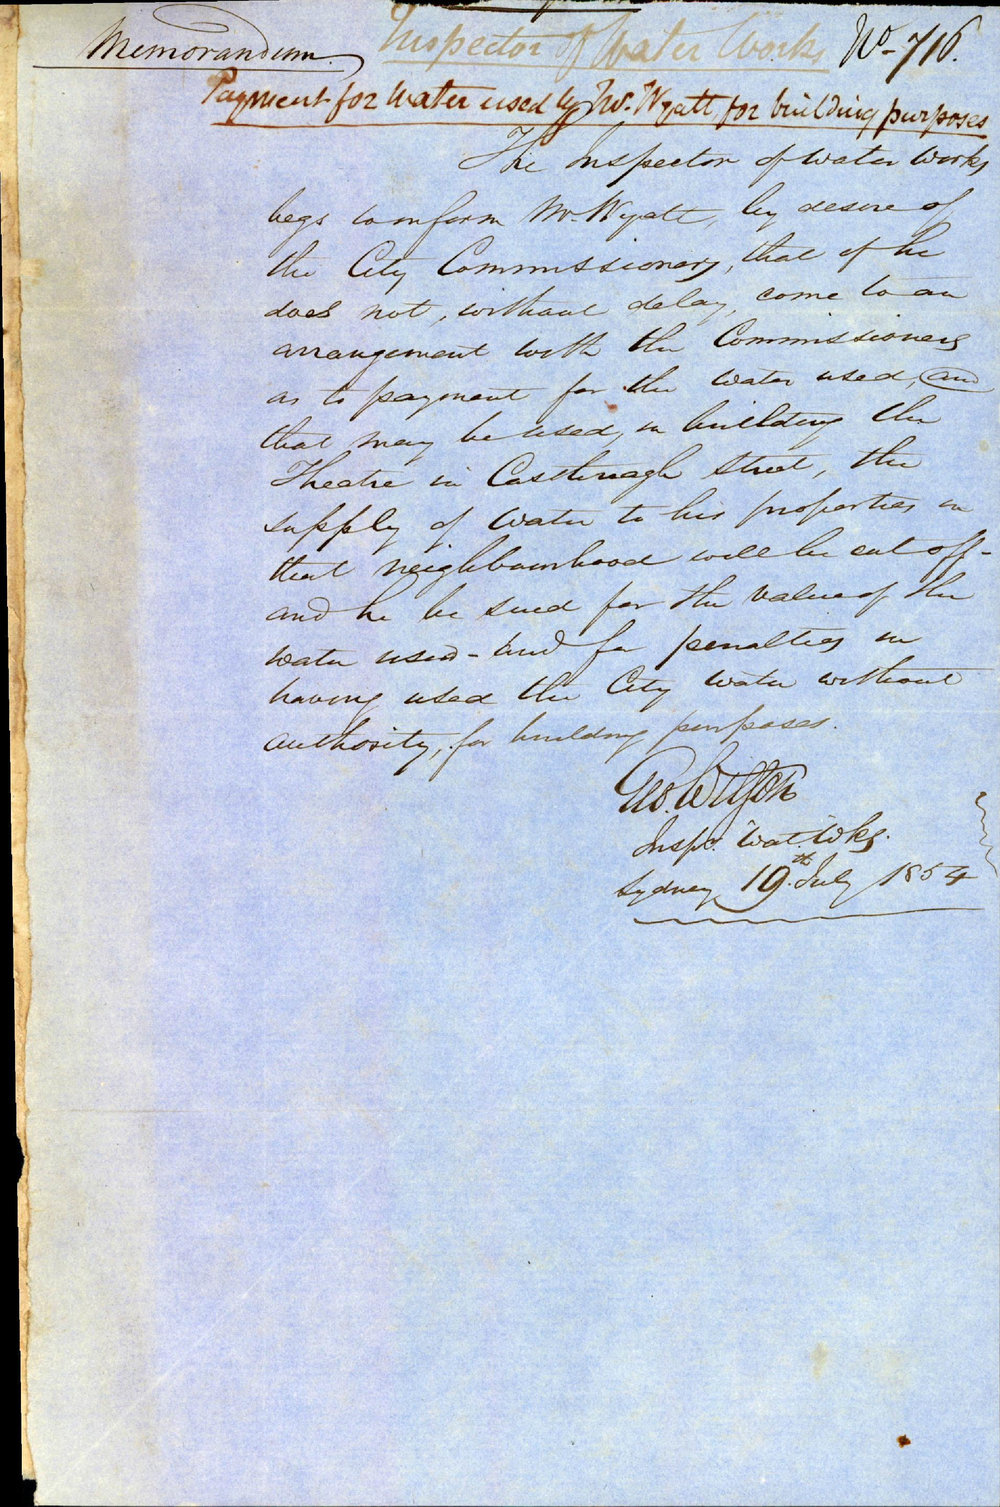 Memorandum. Inspector of Water Works No. 716.
Payment for Water used by Mr. Wyatt, for building purposes
The Inspector of Water Works
begs to inform Mr. Wyatt, by desire of
the City Commissioners, that if he
does not, without delay, come to an
arrangement with the Commissioners
as to payment for the water used, and
that may be used, in building the
Theatre in Castlereagh Street, the
supply of water to his properties in
that neighbourhood will be cut off -
and he be sued for the value of the
water used - and for penalties in
having used the City water without
authority, for building purposes.
Geo. Wilson
Inspr. Wat. Wks.
Sydney 19th. July 1854